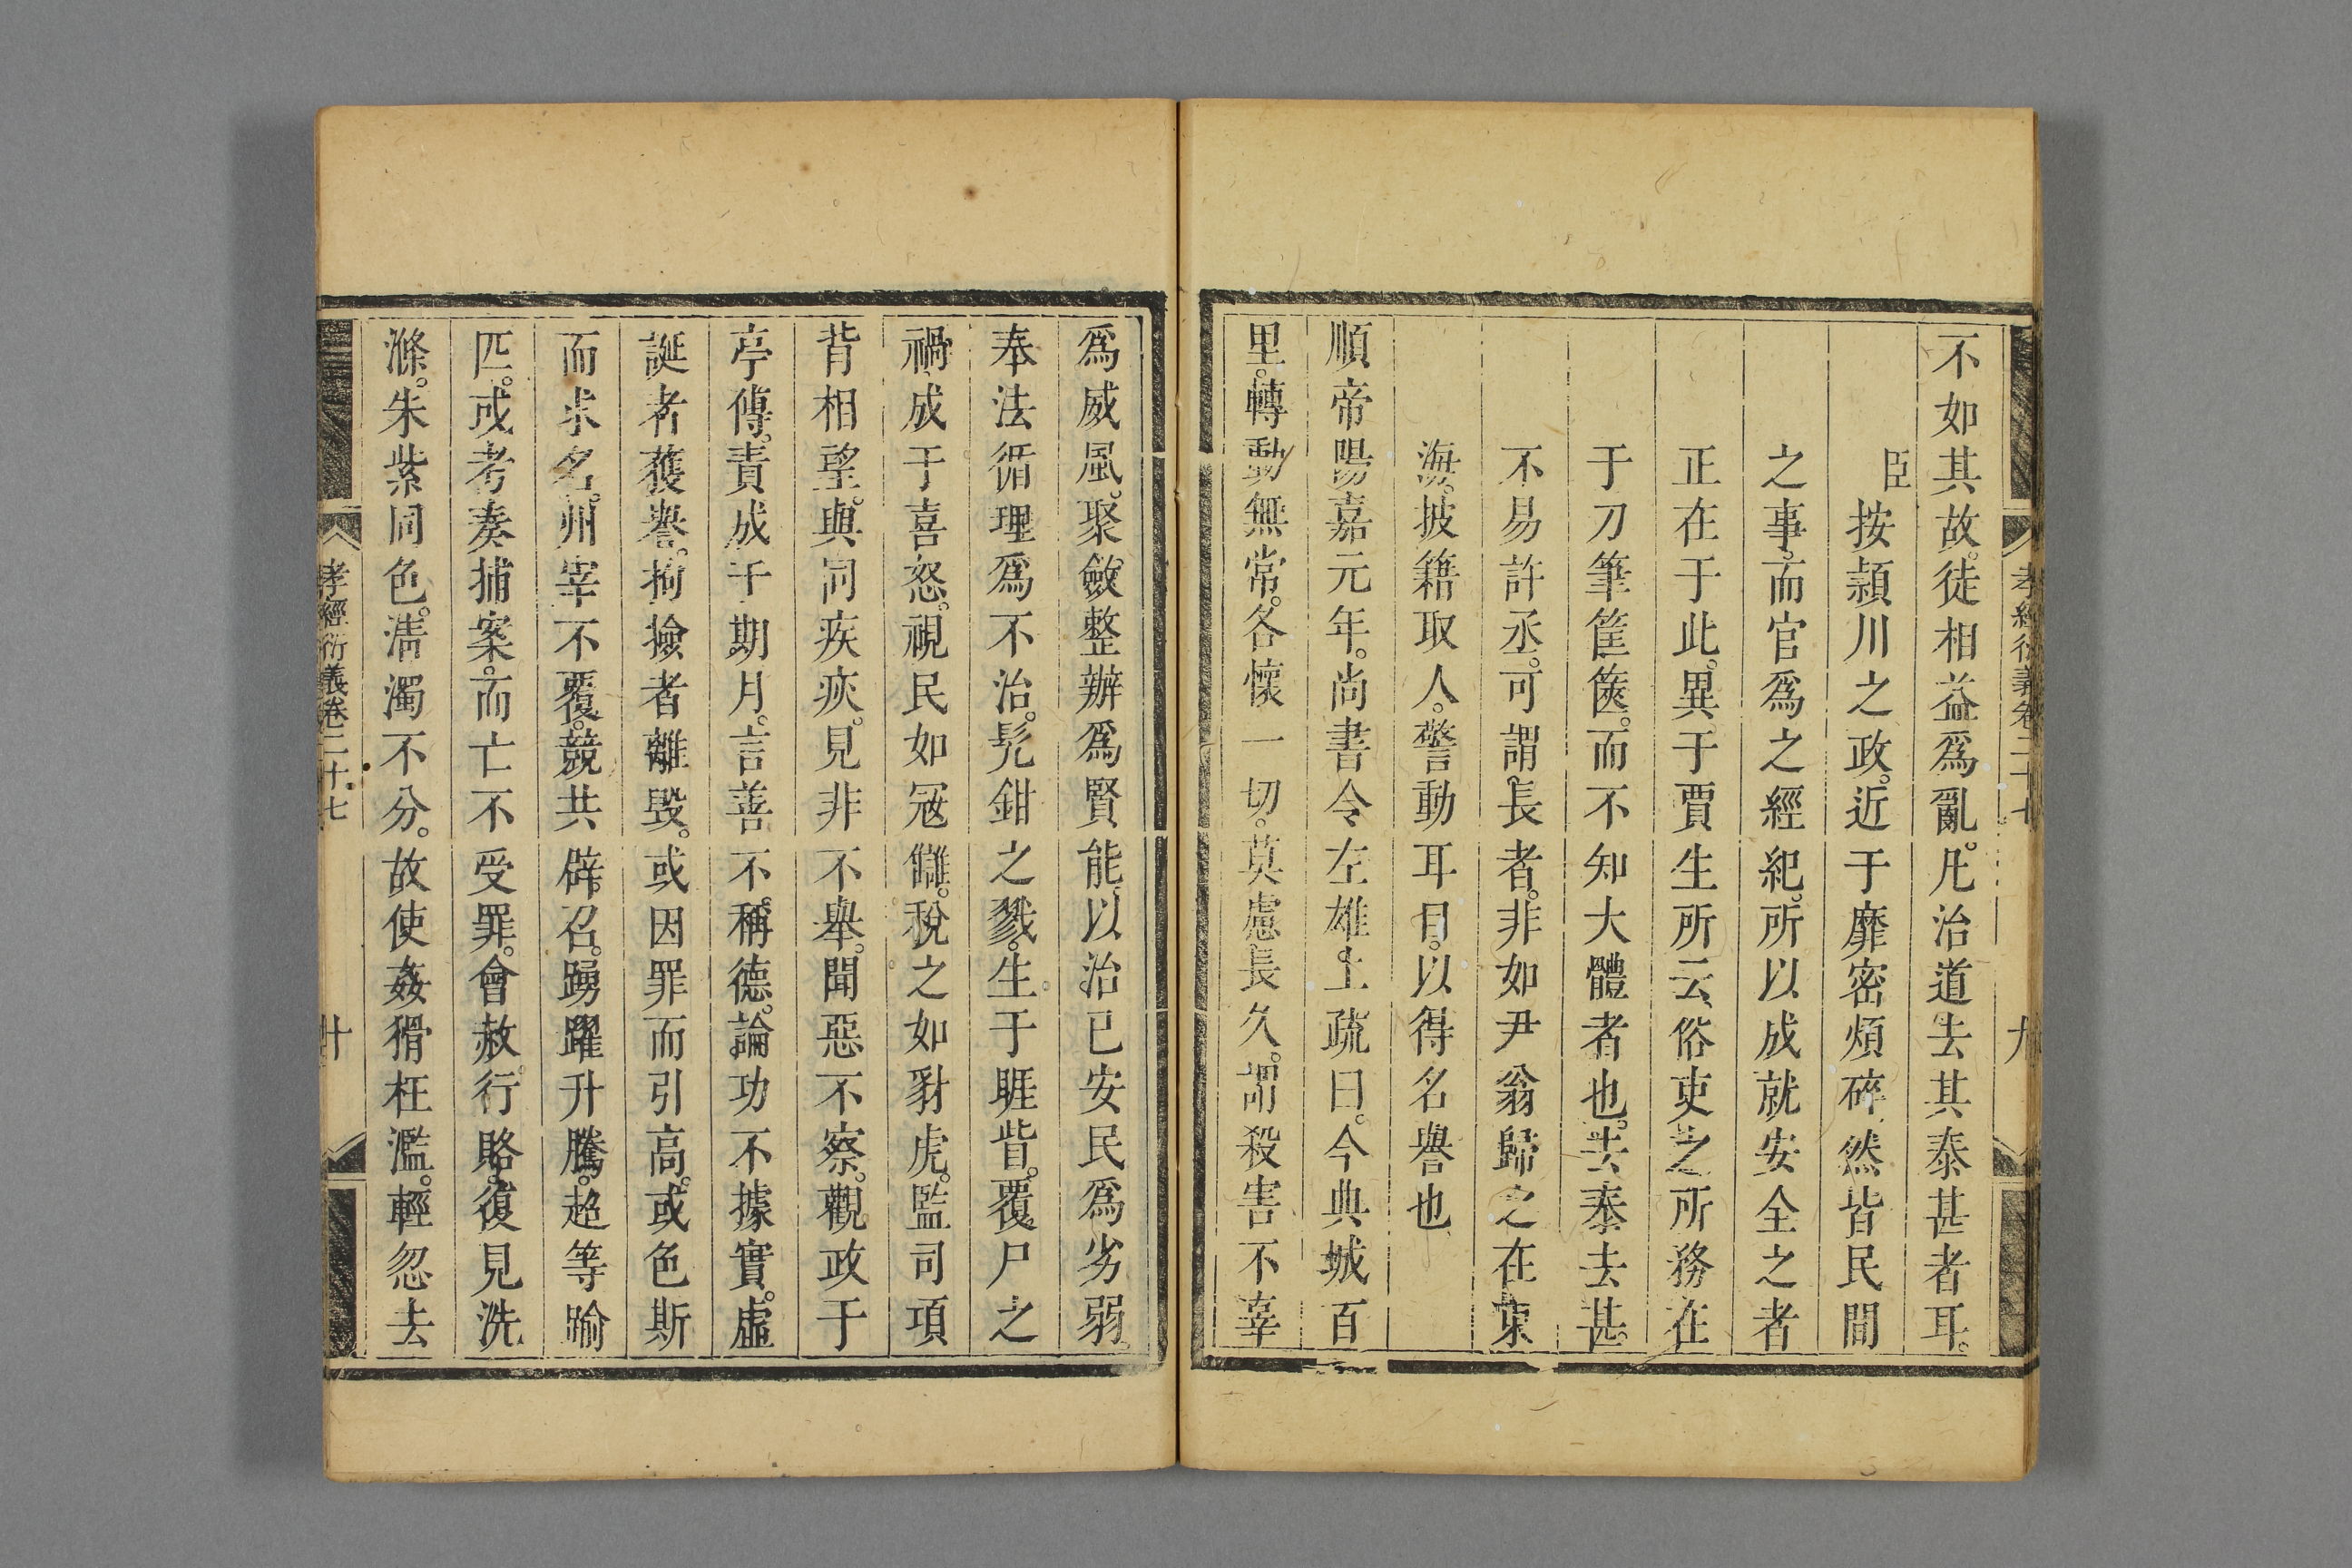 孝經衍義卷二十七
九
不如其故。徒相益爲亂。凡治道去其泰甚者耳。
臣按潁川之政。近于靡密煩碎。然皆民間
之事。而官爲之經紀。所以成就安全之者
正在于此。異于賈生所云。俗吏之所務在
于刀筆筐篋。而不知大體者也。去泰去甚。
不易許丞。可謂長者。非如尹翁歸之在東
海。披籍取人。警動耳目。以得名譽也
順帝陽嘉元年。尚書令左雄。上疏曰。今典城百
里。轉動無常。各懷一切。莫慮長久。謂殺害不辜
爲威風。聚斂整辦爲賢能。以治已安民爲劣弱。
奉法循理爲不治。髠鉗之戮。生于睚眥。覆尸之
禍成于喜怒。視民如寇讎。稅之如豺虎。監司項
背相望。與同疾疢。見非不舉。聞惡不察。觀政于
亭傳。責成于期月。言善不稱德。論功不據實。虛
誕者獲譽。拘撿者離毀。或因罪而引高。或色斯
而求名。州宰不覆。競共辟召。踴躍升騰。超等踰
匹。或考奏捕案。而亡不受罪。會赦行賂。復見洗
滌。朱紫同色。淸濁不分。故使姦猾枉濫。輕忽去
孝經衍義卷二十七
廿